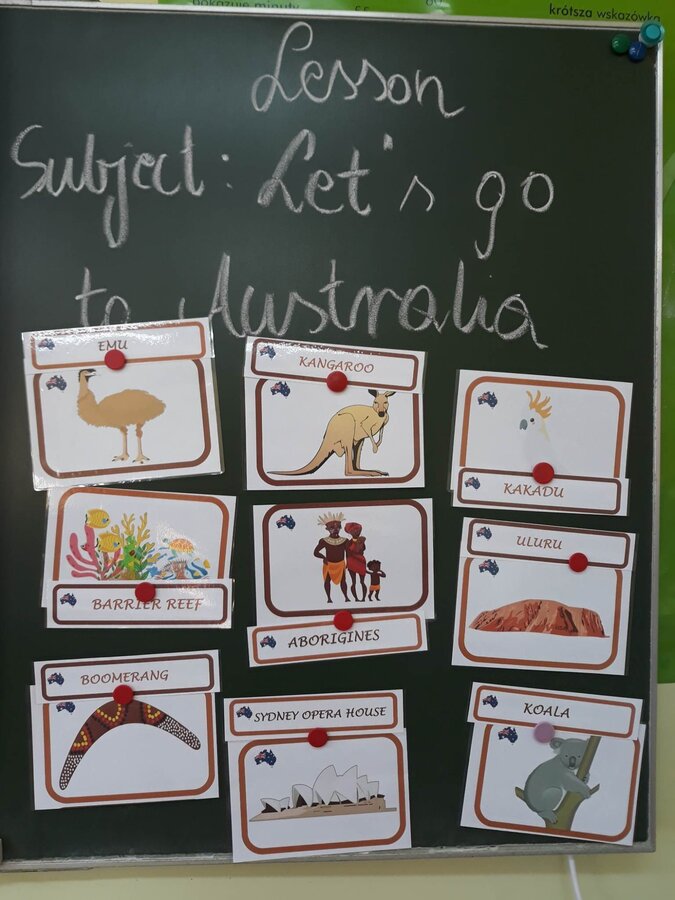 pokazuje minuty
55
krótsza wskazówka
Lesson
Subject: Let's go
to Australia
EMU
KANGAROO
KAKADU
BARRIER REEF
ABORIGINES
ULURU
BOOMERANG
SYDNEY OPERA HOUSE
KOALA